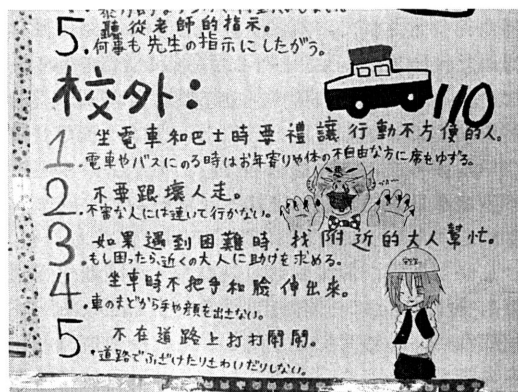 5. 聽從老師的指示。
何事も先生の指示にしたがう。
校外:
110
1. 坐電車和巴士時要禮讓行動不方便的人。
電車やバスにのる時はお年寄りや体の不自由な方に席をゆずる。
2. 不要跟壞人走。
不審な人には連いて行かない。
3. 如果遇到困難時,找附近的大人幫忙。
もし困ったら、近くの大人に助けを求める。
4. 坐車時不把手和臉伸出來。
車のまどから手や顔を出さない。
5. 不在道路上打打鬧鬧。
道路でふざけたりさわいだりしない。